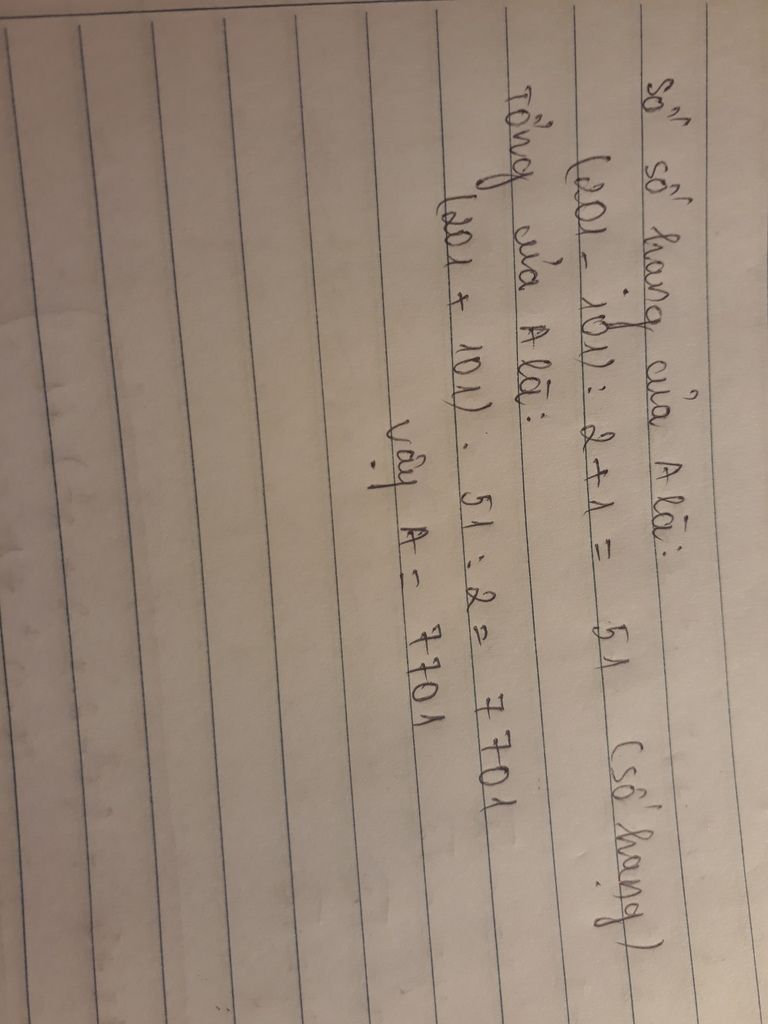 Số số hạng của A là:
(201 - 101) : 2 + 1 = 51 (số hạng)
Tổng của A là:
(201 + 101) . 51 : 2 = 7701
Vậy A = 7701